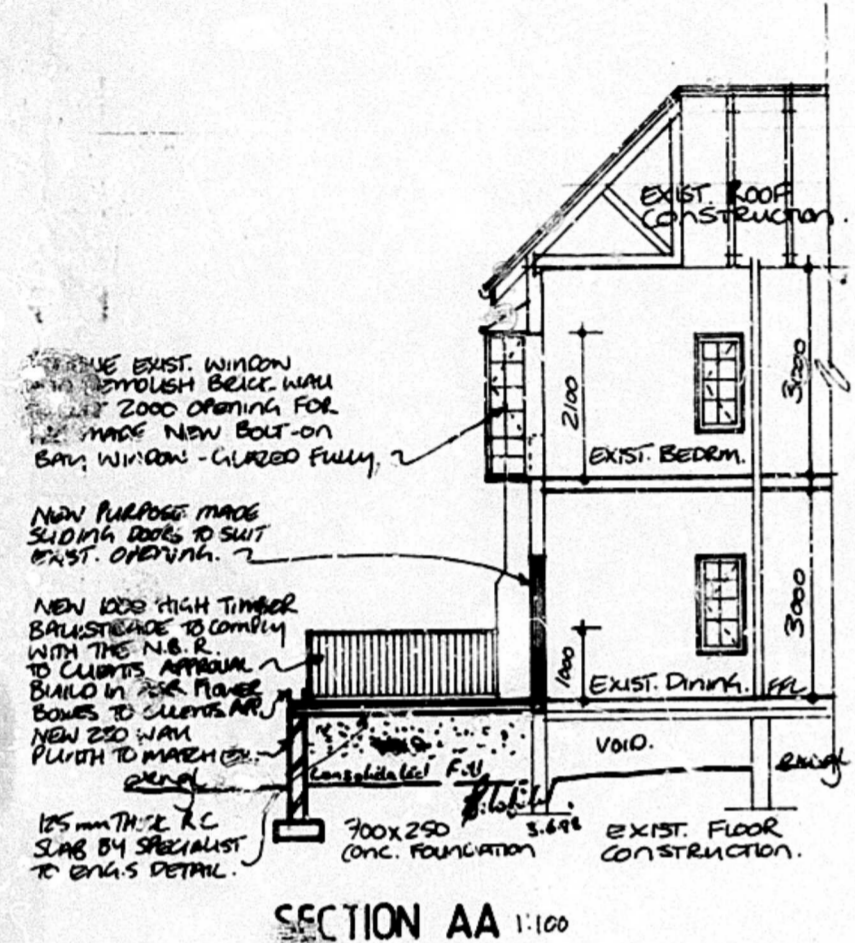 EXIST. ROOF
CONSTRUCTION.
EXIST. WINDOW
DEMOLISH BRICK WALL
2000 OPENING FOR
MADE NEW BOLT-ON
BAY WINDOW - GLAZED FULLY
2100
EXIST. BEDRM.
NEW PURPOSE MADE
SLIDING DOORS TO SUIT
EXIST. OPENING.
NEW 1000 HIGH TIMBER
BALUSTRADE TO COMPLY
WITH THE N.B.R.
TO CLIENTS APPROVAL
BUILD IN FLOWER
BOXES TO CLIENTS AP.
NEW 230 WALL
PLINTH TO MATCH EX.
1000
3000
EXIST. DINING.
FFL
VOID.
Consolidated Fill
125mm THICK RC
SLAB BY SPECIALIST
TO ENG.S DETAIL.
700x250
CONC. FOUNDATION
3.6.98
EXIST. FLOOR
CONSTRUCTION.
SECTION AA 1:100